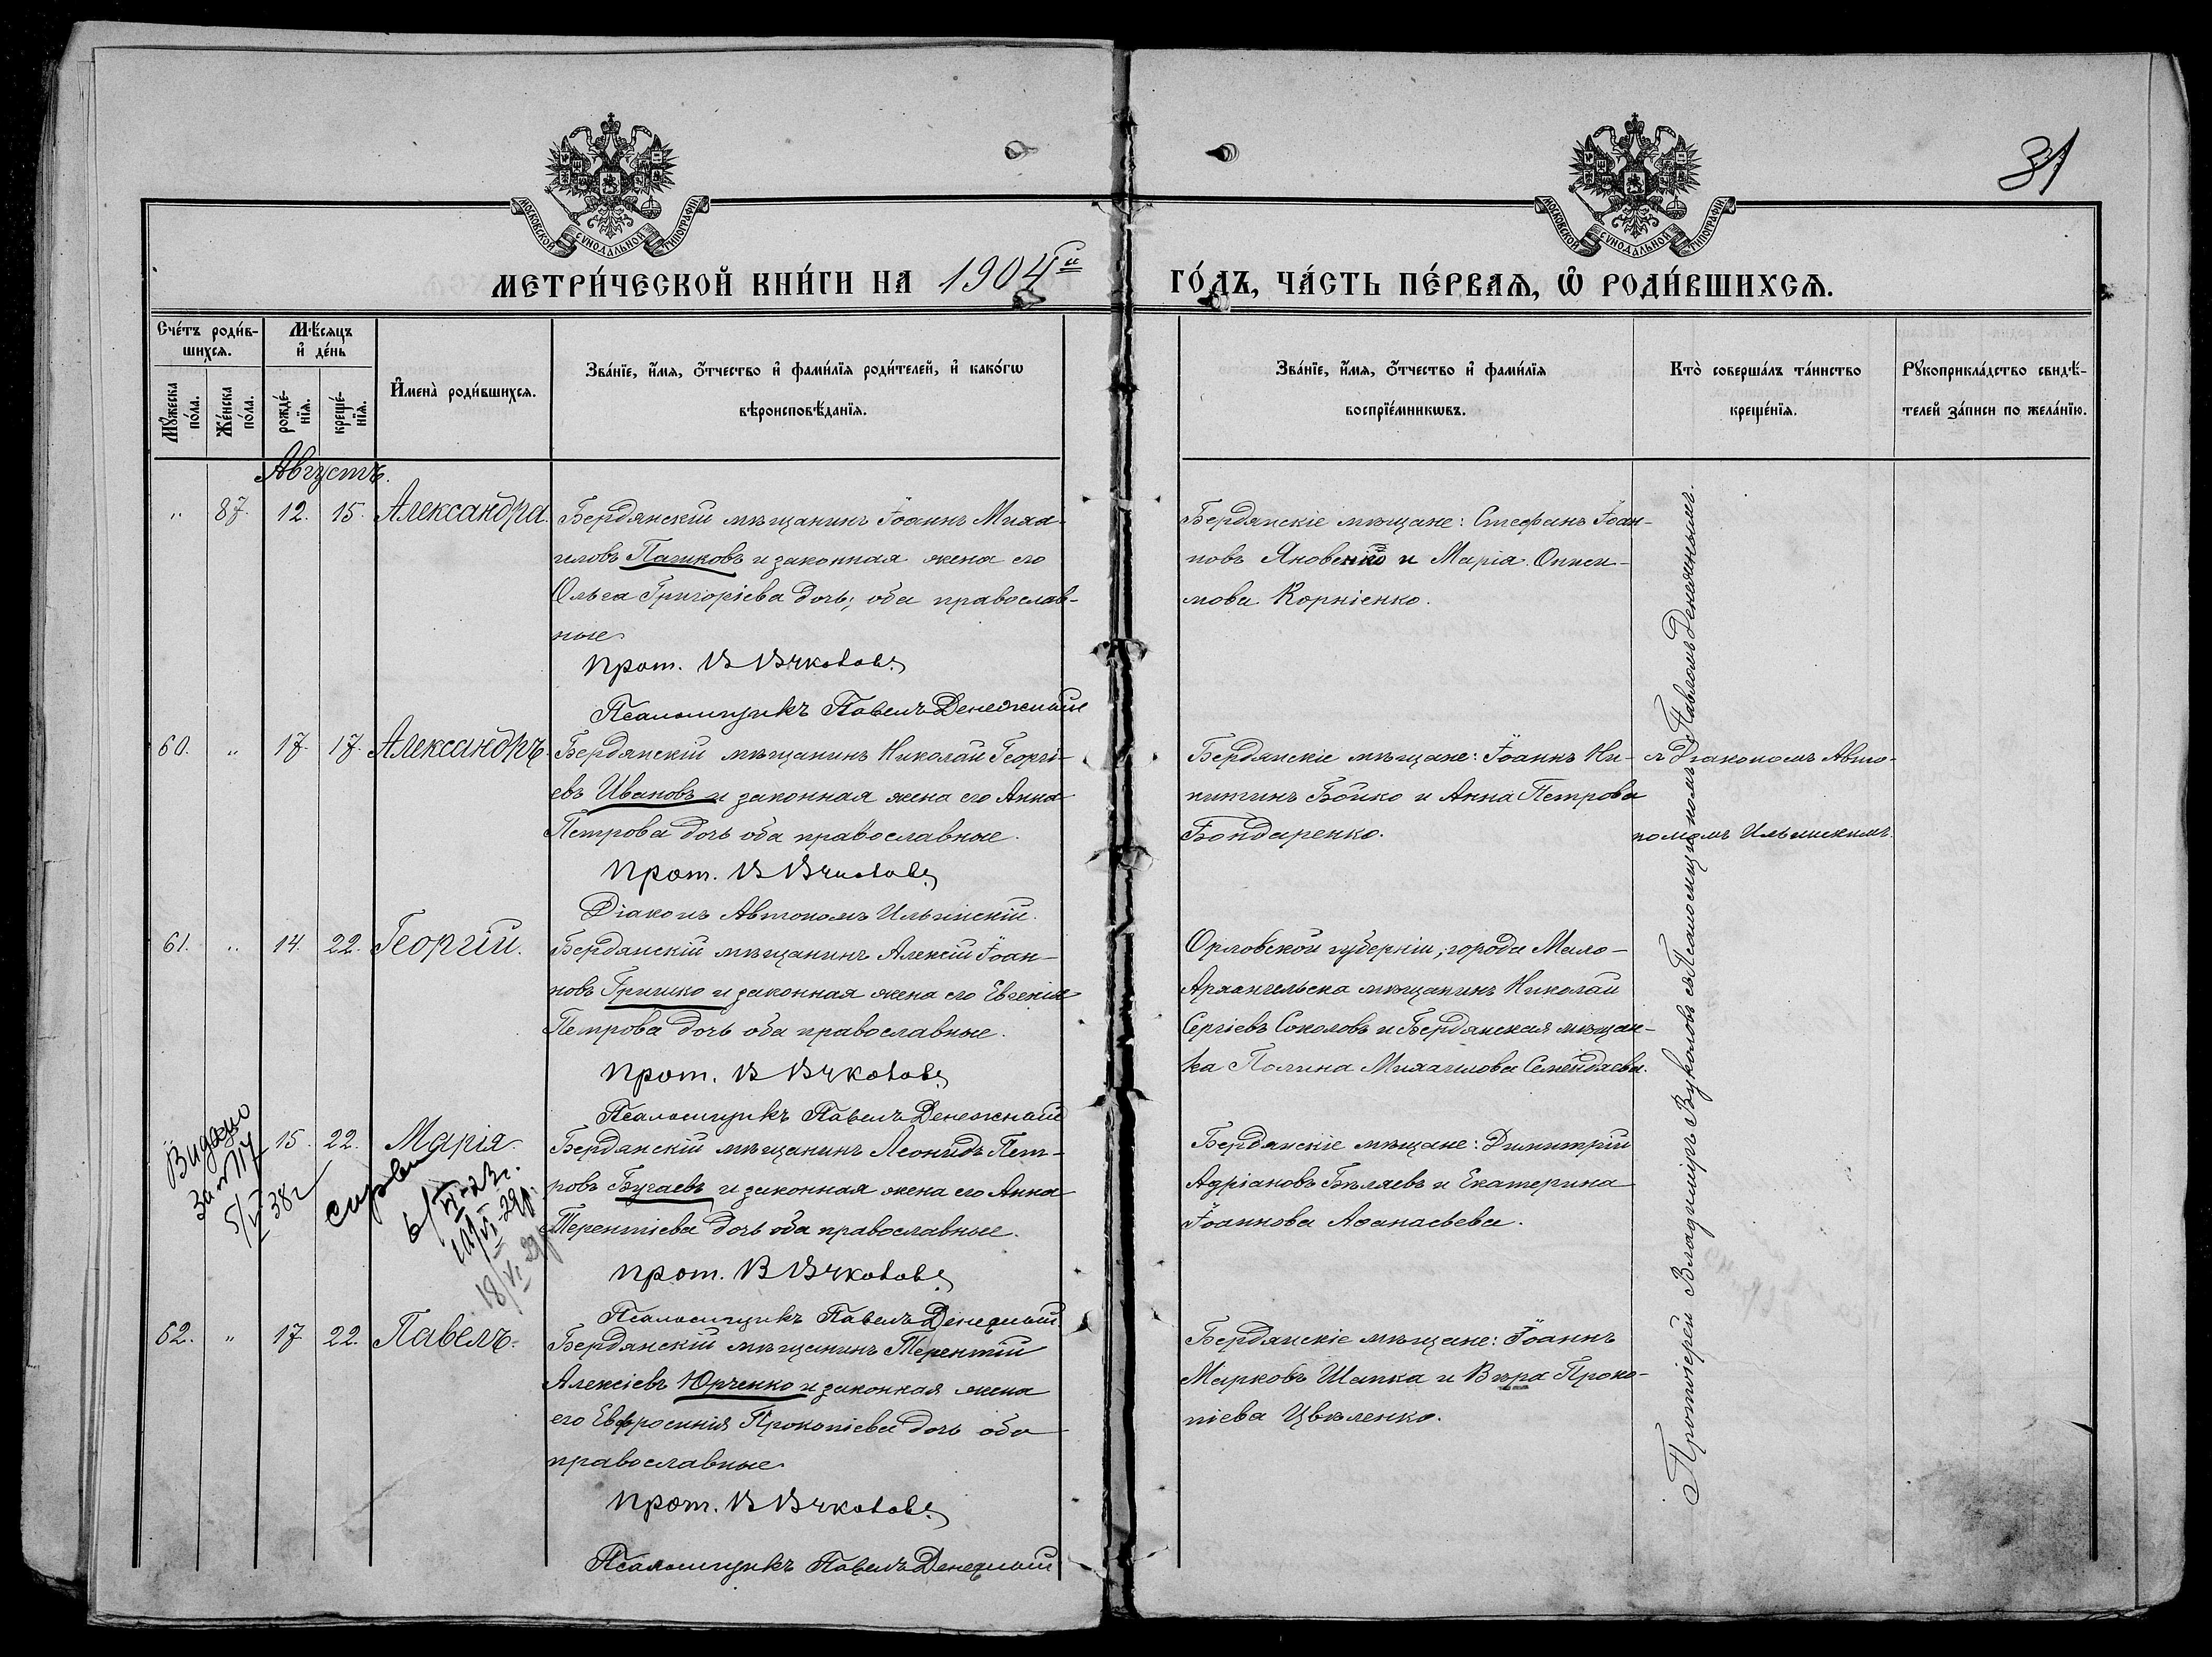 31
МОСКОВСКОЙ СѴНОДАЛЬНОЙ ТИПОГРАФІИ
МОСКОВСКОЙ СѴНОДАЛЬНОЙ ТИПОГРАФІИ
МЕТРИ́ЧЕСКОЙ КНИ́ГИ НА 1904й ГО́ДЪ, ЧА́СТЬ ПЕ́РВАѦ, Ѽ РОДИ́ВШИХСѦ.
Сче́тъ роди́в-
шихсѧ.
Мꙋжеска по́ла.
Же́нска по́ла.
Мѣ́сѧцъ
и҆ де́нь
рожде́-
нїѧ.
креще́-
нїѧ.
И҆мена̀ роди́вшихсѧ.
Зва́нїе, и҆́мѧ, ѻ҆́тчество и҆ фами́лїѧ роди́телей, и҆ како́гѡ
вѣроисповѣ́данїѧ.
Зва́нїе, и҆́мѧ, ѻ҆́тчество и҆ фами́лїѧ
воспрїе́мникѡвъ.
Кто̀ соверша́лъ та́инство
креще́нїѧ.
Рꙋкоприкла́дство свидѣ́-
телей за́писи по жела́нїю.
Августъ.
„ 87. 12. 15. Александра.
Бердянскій мѣщанинъ Іоаннъ Миха-
иловъ Пашковъ и законная жена его
Ольга Григоріева дочь; оба православ-
ные.
Прот. В Вуколовъ
Псаломщикъ Павелъ Денежный
Бердянскіе мѣщане: Стефанъ Іоан-
новъ Яновскій и Марія Ониси-
мова Корніенко.
60. „ 17. 17. Александръ.
Бердянскій мѣщанинъ Николай Георгі-
евъ Ивановъ и законная жена его Анна
Петрова дочь оба православные.
Прот. В Вуколовъ
Діаконъ Автономъ Ильинскій.
Бердянскіе мѣщане: Іоаннъ Ни-
китинъ Бойко и Анна Петрова
Бондаренко.
съ Діакономъ Авто-
номомъ Ильинскимъ.
61. „ 14. 22. Георгій.
Бердянскій мѣщанинъ Алексій Іоан-
новъ Гришко и законная жена его Евгенія
Петрова дочь оба православные.
Прот. В Вуколовъ
Псаломщикъ Павелъ Денежный
Орловской губерніи, города Мало-
Архангельска мѣщанинъ Николай
Сергіевъ Соколовъ и Бердянская мѣщан-
ка Полина Михаилова Семендяева.
15. 22. Марія.
Видано
за № 117
5/V 38 г
6/VI-23г.
18/VI 29
Бердянскій мѣщанинъ Леонидъ Пет-
ровъ Бугаевъ и законная жена его Анна
Терентіева дочь оба православные.
Прот. В Вуколовъ
Псаломщикъ Павелъ Денежный
Бердянскіе мѣщане: Димитрій
Адріановъ Бѣляевъ и Екатерина
Іоаннова Аѳанасьева.
62. „ 17. 22. Павелъ.
Бердянскій мѣщанинъ Терентій
Алексіевъ Юрченко и законная жена
его Евфросинія Прокопіева дочь оба
православные.
Прот. В Вуколовъ
Псаломщикъ Павелъ Денежный
Бердянскіе мѣщане: Іоаннъ
Марковъ Шапка и Вѣра Проко-
піева Цвѣленко.
Протоіерей Владиміръ Вуколовъ съ Псаломщикомъ Павломъ Денежнымъ.